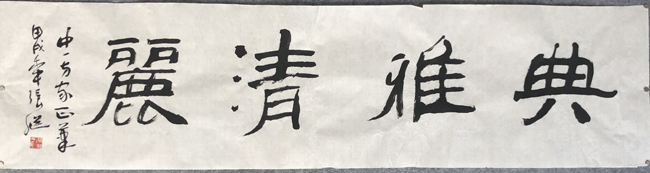 典雅清麗
中一方家正
甲戌年張継